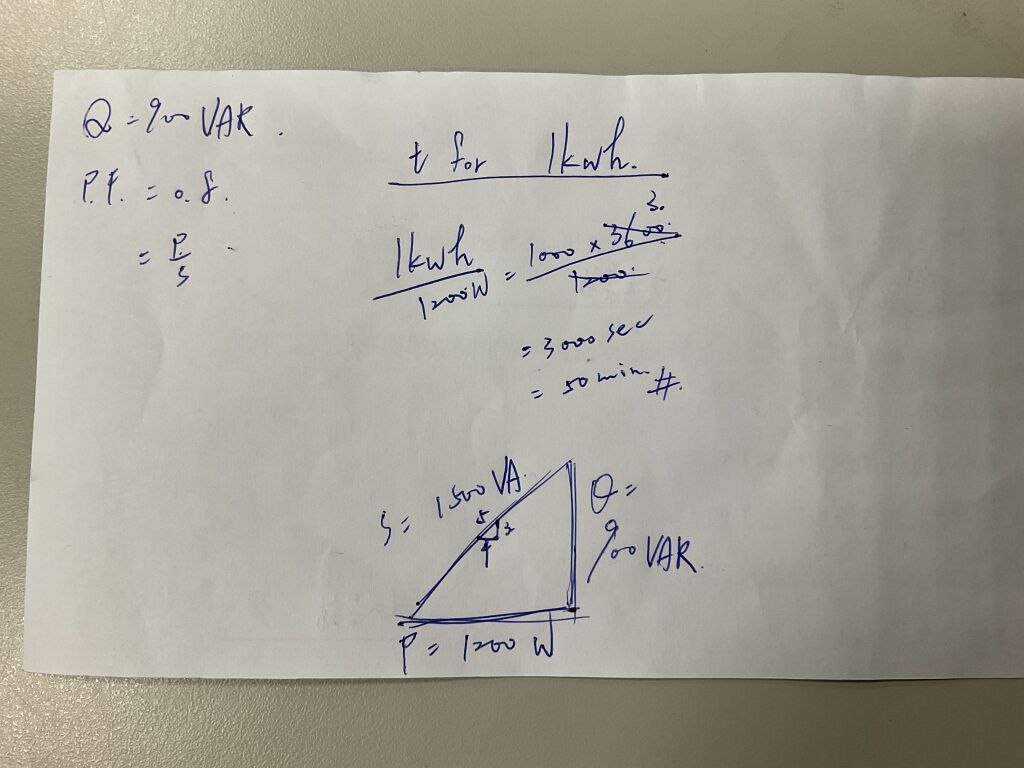 Q = 900 VAR.
P.F. = 0.8.
= P/S
t for 1kwh.
1kwh/1200W = 1000 x 3600/1200.
3.
= 3000 sec
= 50 min #.
S = 1500 VA.
5
3
4
Q =
900 VAR.
P = 1200 W